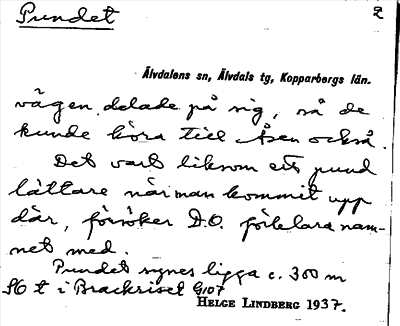 Pundet
2
Älvdalens sn, Älvdals tg, Kopparbergs län.
vägen delade på sig, så de
kunde köra till Åsen också.
Det vart liksom ett pund
lättare när man kommit upp
där, försöker D.O. förklara nam-
net med.
Pundet synes ligga c. 300 m
SO t i Brackriset G107
HELGE LINDBERG 1937.